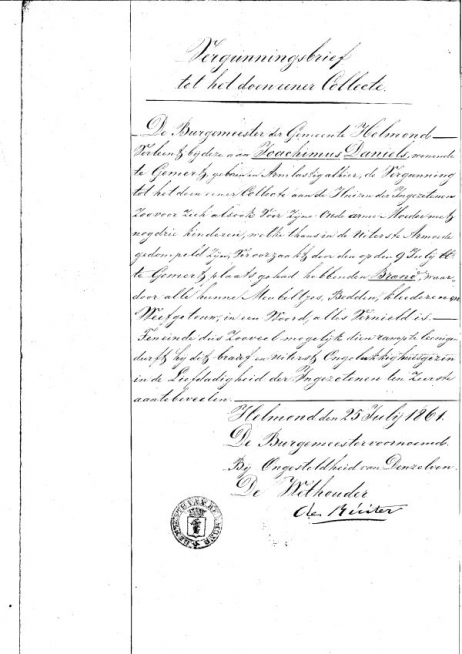 Vergunningsbrief
tot het doen eener Collecte.
De Burgemeester der Gemeente Helmond
Verleent bij deze aan Joachimus Daniels, wonende
te Gemert, geboren en Armlastig aldaar, de Vergunning
tot het doen eener Collecte aan de Huizen der Ingezetenen
Zoo voor Zich alsook Voor Zijne Oude arme Moeder met
nog drie kinderen, welke thans in de Uiterste Armoede
gedompeld Zijn, Veroorzaakt door den op den 9 July
te Gemert plaats gehad hebbenden Brand, waar
door alle hunne Meubeltjes, Bedden, kleederen en
Weefgetouw, in een Woord, alles Vernield is.
Teneinde dus Zooveel mogelijk dien ramp te lenigen
durft hij dit braaf en uiterst Ongelukkig huisgezin
in de Liefdadigheid der Ingezetenen ten Zeerste
aan te bevelen.
Helmond den 25 July 1861.
De Burgemeester voornoemd.
Bij Ongesteldheid van Denzelven.
De Wethouder
de Ruiter